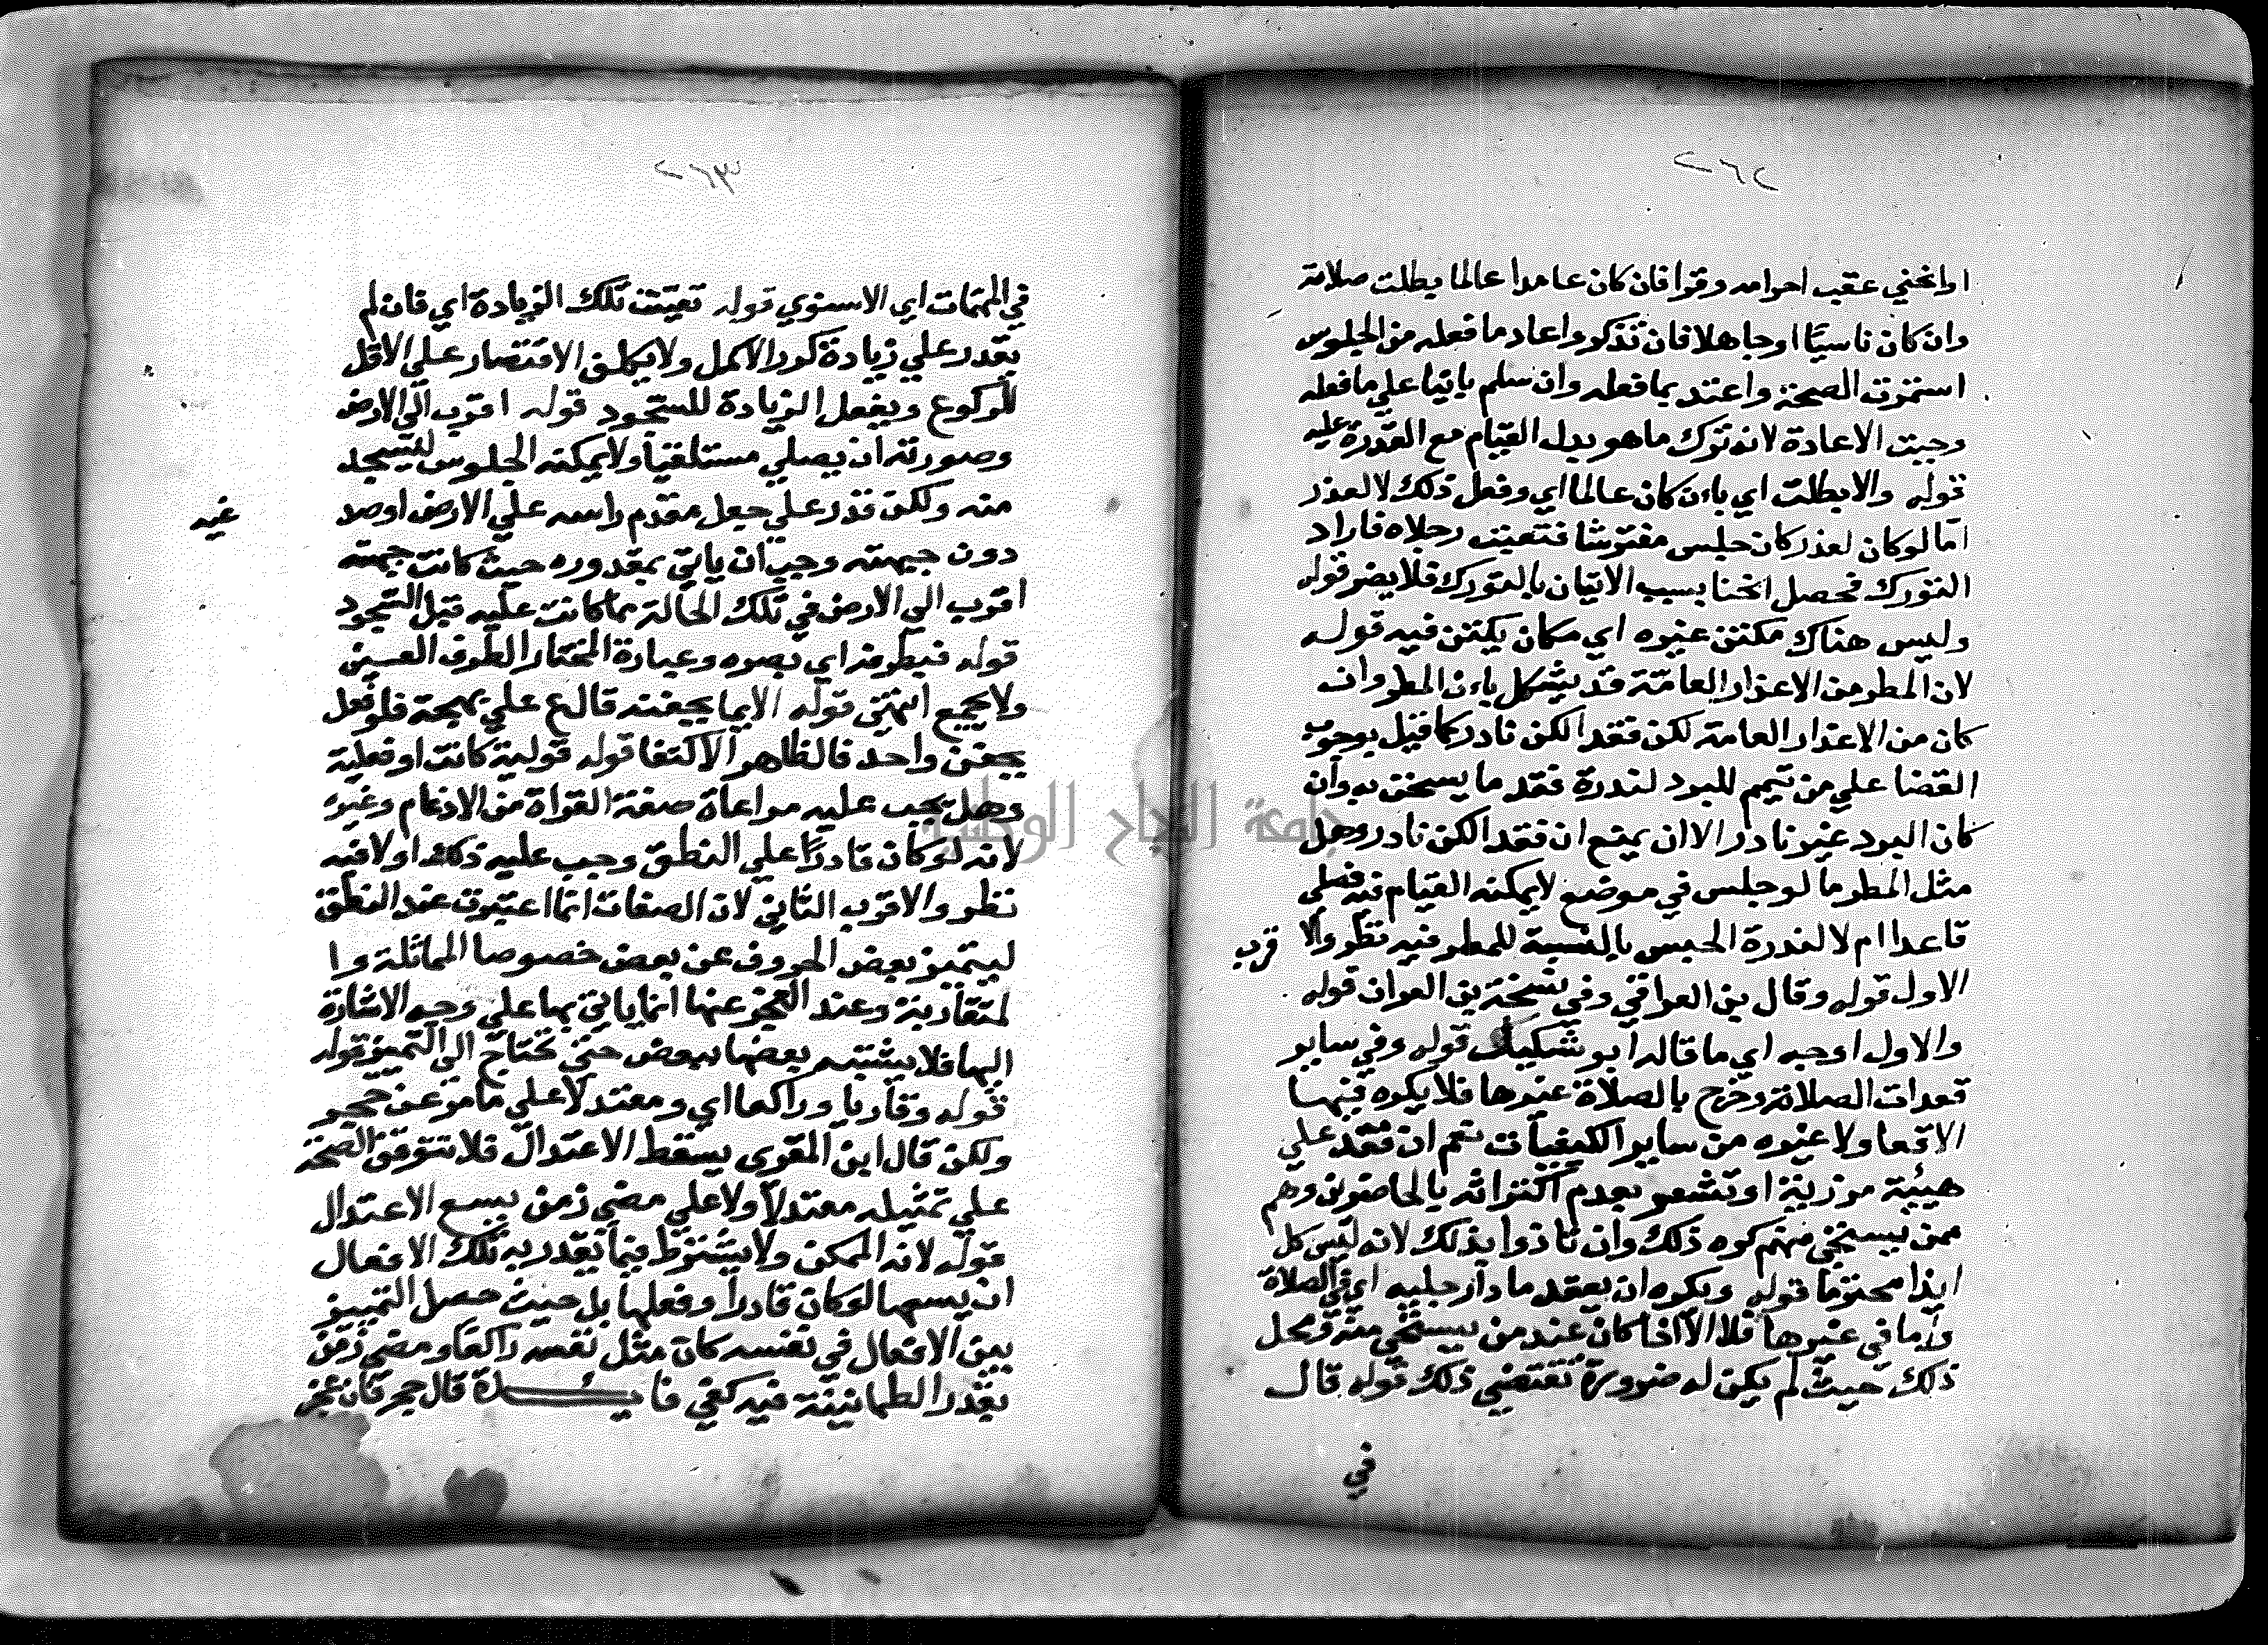 ٢٦٢
او انحني عقب احرامه وقرا فان كان عامدا عالما بطلت صلاته
وان كان ناسيًا او جاهلا فان تذكر واعاد ما فعله من الجلوس
استمرت الصحة واعتد بما فعله وان سلم بانيا علي ما فعله
وجبت الاعادة لانه ترك ما هو بدل القيام مع القدرة عليه
قوله والا بطلت اي باءن كان عالما اي وفعل ذلك لا لعذر
اما لو كان لعذر كان جلس مفترشا فتعبت رجلاه فاراد
التورك فحصل انحنا بسبب الاتيان بالتورك فلا يضر قوله
وليس هناك مكتن غيره اي مكان يكتن فيه قوله
لان المطر من الاعذار العامة قد يشكل باءن المطر وان
كان من الاعذار العامة لكن فقد الكن نادر كما قيل بوجوب
القضا علي من تيمم للبرد لندرة فقد ما يسخن به وان
كان البرد غير نادر الا ان يمنع ان فقد الكن نادر وهل
مثل المطر ما لو جلس في موضع لا يمكنه القيام فيه فصلي
قاعدا ام لا لندرة الحبس بالنسبة للمطر فيه نظر والا قرب
الاول قوله وقال بن العراقي وفي نسخة بن العران قوله
والاول اوجه اي ما قاله ابو شكيل قوله وفي ساير
قعدات الصلاة وخرج بالصلاة غيرها فلا يكره فيها
الاقعا ولا غيره من ساير الكيفيات نعم ان قعد علي
هيئة مزرية او تشعر بعدم اكتراثه بالحاضرين وهم
ممن يستحي منهم كره ذلك وان تاذوا بذلك لانه ليس كل
ايذا محترما قوله ويكره ان يقعد مادا رجليه اي في الصلاة
واما في غيرها فلا الا اذا كان عند من يستحي منه ومحل
ذلك حيث لم يكن له ضرورة تقتضي ذلك قوله قال
في
٢٦٣
في المهمات اي الاسنوي قوله تعينت تلك الزيادة اي فان لم
يقدر علي زيادة كرر الاكمل ولا يكلف الاقتصار علي الاقل
للركوع ويفعل الزيادة للسجود قوله اقرب الي الارض
وصورته ان يصلي مستلقيا ولا يمكنه الجلوس ليسجد
منه ولكن قدر علي جعل مقدم راسه علي الارض او صد
غيه
دون جبهته وجب ان ياتي بمقدوره حيث كانت جبهته
اقرب الي الارض في تلك الحالة مما كانت عليه قبل السجود
قوله فبطرفه اي بصره وعبارة المختار الطرف العين
ولا يجمع انتهي قوله الايما بجفنه قال ع علي بهجة فلو فعل
بجفن واحد فالظاهر الاكتفا قوله قولية كانت او فعلية
وهل يجب عليه مراعاة صفة القراة من الادغام وغيره
لانه لو كان قادرًا علي النطق وجب عليه ذلك او لا فيه
نظر والاقرب الثاني لان الصفات انما اعتبرت عند النطق
ليتميز بعض الحروف عن بعض خصوصا المماثلة وا
لمتقاربة وعند العجز عنها انما ياتي بها علي وجه الاشارة
اليها فلا يشتبه بعضها ببعض حتي تحتاج الي التمييز قوله
قوله وقاريا وراكعا اي ومعتدلا علي ما مر عن حجر
ولكن قال ابن المقري يسقط الاعتدال فلا تتوقف الصحة
علي تمثيله معتدلا ولا علي مضي زمن يسع الاعتدال
قوله لانه الممكن ولا يشترط فيما يقدر به تلك الافعال
ان يسعها لو كان قادرا وفعلها بل حيث حصل التمييز
بين الافعال في نفسه كان مثل نفسه راكعا ومضي زمن
يقدر الطمانينة فيه كفي فايدة قال حجر فان عجز
جامعة النجاح الوطنية